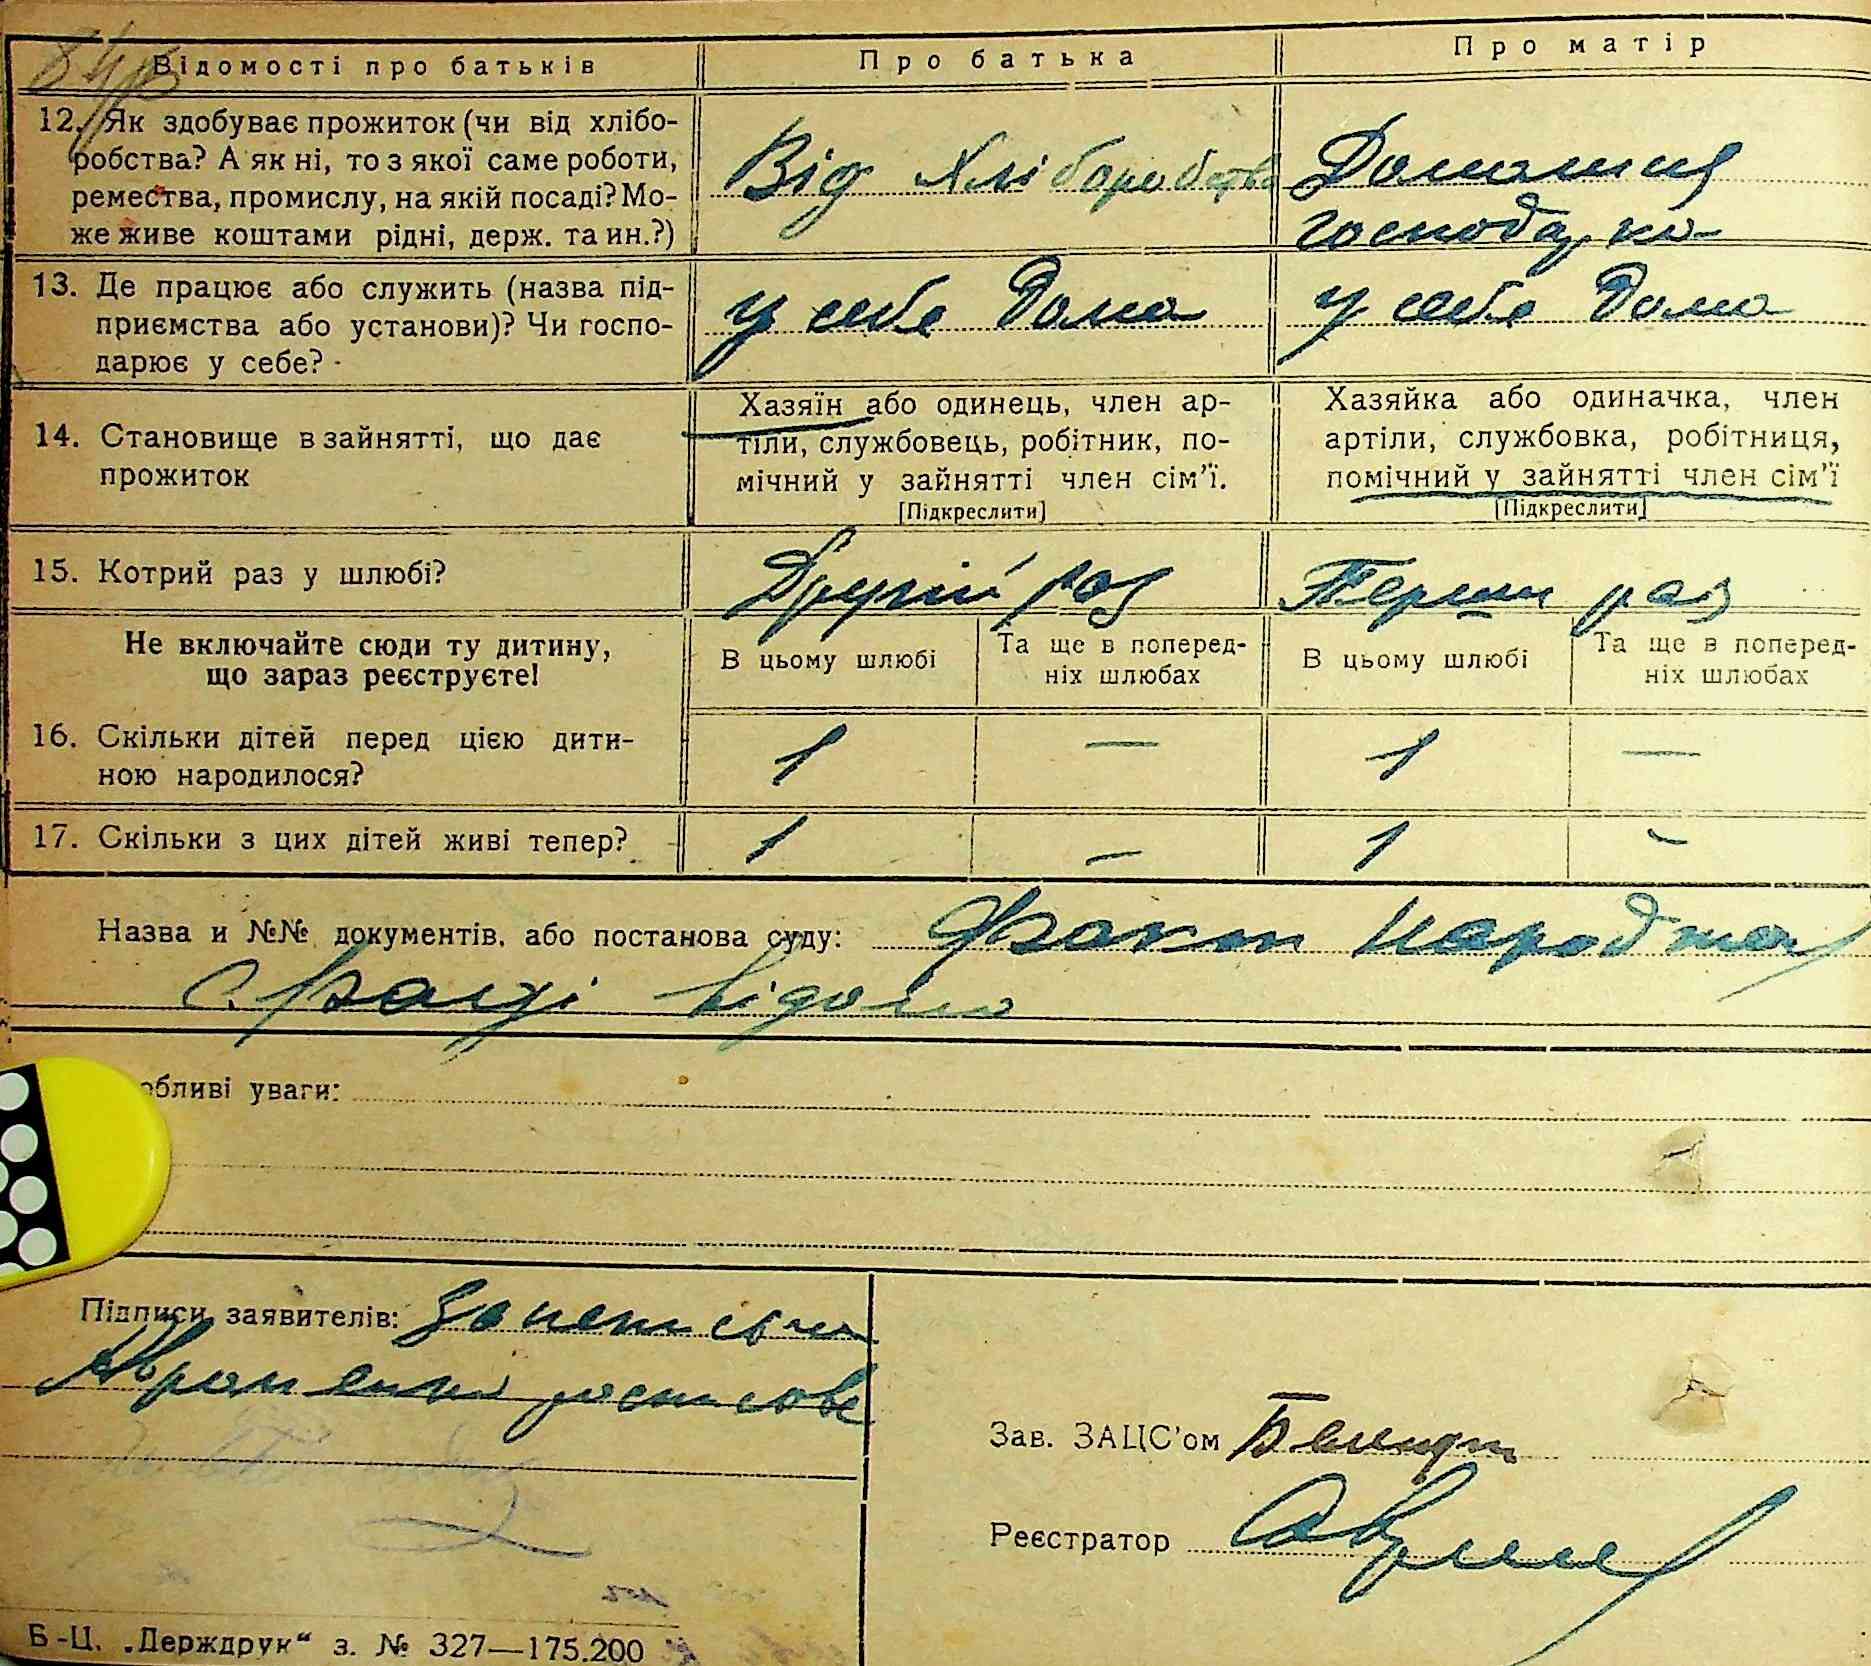 Відомості про батьків
Про батька
Про матір
12. Як здобуває прожиток (чи від хлібо-
робства? А як ні, то з якої саме роботи,
ремества, промислу, на якій посаді? Мо-
же живе коштами рідні, держ. та ин.?)
Від Хліборобства
Домашня
господарка
13. Де працює або служить (назва під-
приємства або установи)? Чи госпо-
дарює у себе?
у себе дома
у себе дома
14. Становище в зайнятті, що дає
прожиток
Хазяїн або одинець, член ар-
тіли, службовець, робітник, по-
мічний у зайнятті член сім'ї.
[Підкреслити]
Хазяйка або одиначка, член
артіли, службовка, робітниця,
помічний у зайнятті член сім'ї
[Підкреслити]
15. Котрий раз у шлюбі?
Другий раз
Перший раз
Не включайте сюди ту дитину,
що зараз реєструєте!
В цьому шлюбі
Та ще в поперед-
ніх шлюбах
В цьому шлюбі
Та ще в поперед-
ніх шлюбах
16. Скільки дітей перед цією дити-
ною народилося?
1 — 1 —
17. Скільки з цих дітей живі тепер?
1 — 1 -
Назва и №№ документів, або постанова суду: Факт народження
с/раді відомо
обливі уваги:
Підписи заявителів:
Зав. ЗАЦС'ом
Реєстратор
Б-Ц. „Держдрук“ з. № 327—175.200